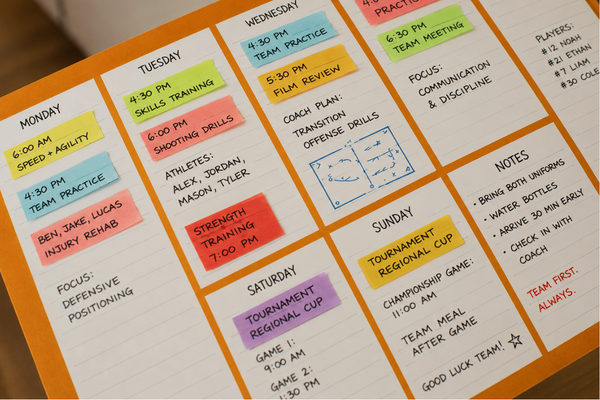 MONDAY
6:00 AM
SPEED + AGILITY
4:30 PM
TEAM PRACTICE
BEN, JAKE, LUCAS
INJURY REHAB
FOCUS:
DEFENSIVE
POSITIONING
TUESDAY
4:30 PM
SKILLS TRAINING
6:00 PM
SHOOTING DRILLS
ATHLETES:
ALEX, JORDAN,
MASON, TYLER
STRENGTH
TRAINING
7:00 PM
WEDNESDAY
4:30 PM
TEAM PRACTICE
5:30 PM
FILM REVIEW
COACH PLAN:
TRANSITION
OFFENSE DRILLS
PRACTICE
6:30 PM
TEAM MEETING
FOCUS:
COMMUNICATION
& DISCIPLINE
PLAYERS:
#12 NOAH
#21 ETHAN
#7 LIAM
#30 COLE
SATURDAY
TOURNAMENT
REGIONAL CUP
GAME 1:
9:00 AM
GAME 2:
1:30 PM
SUNDAY
TOURNAMENT
REGIONAL CUP
CHAMPIONSHIP GAME:
11:00 AM
TEAM MEAL
AFTER GAME
GOOD LUCK TEAM! ☆
NOTES
• BRING BOTH UNIFORMS
• WATER BOTTLES
• ARRIVE 30 MIN EARLY
• CHECK IN WITH
COACH
TEAM FIRST.
ALWAYS.